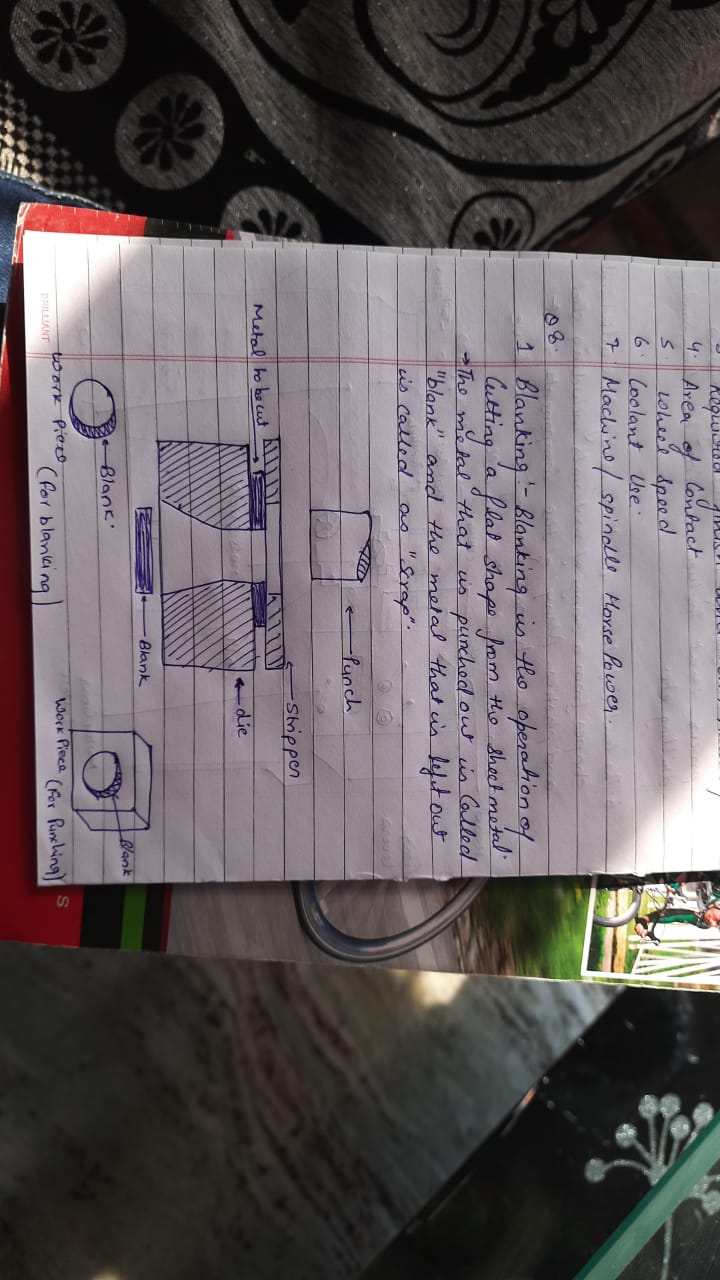 4. Area of Contact
5 wheel Speed
6. Coolant Use.
7 Machine/ spindle Horse Power.
Q8.
1 Blanking :- Blanking is the operation of
Cutting a flat shape from the sheetmetal.
→ The metal that is punched out is Called
"blank" and the metal that is left out
is called as "Scrap".
← Punch
← Stripper
Metal to be cut
← die
← Blank
← Blank.
Blank
Work Piece (For blanking)
Work Piece (For Punching)
BRILLIANT
S